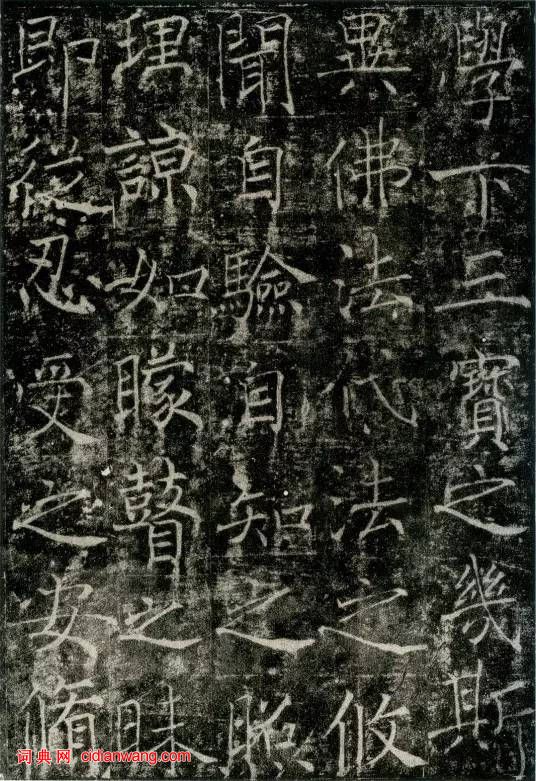 學卞三寶之幾斯
異佛法代法之攸
聞自驗自知之
理諒如矇瞽之昧
即從忍受之安脩
词典网 cidianwang.com